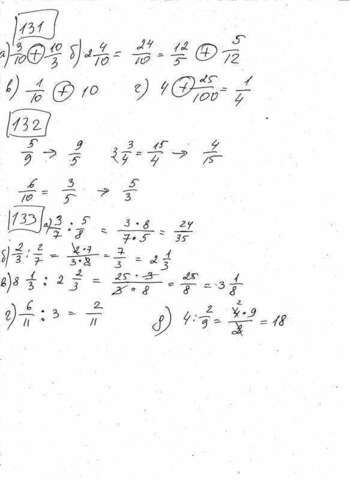 131
а) 3/10 ⊕ 10/3 б) 2 4/10 = 24/10 = 12/5 ⊕ 5/12
в) 1/10 ⊕ 10 г) 4 ⊕ 25/100 = 1/4
132
5/9 → 9/5 3 3/4 = 15/4 → 4/15
6/10 = 3/5 → 5/3
133 а) 3/7 : 5/8 = 3·8/7·5 = 24/35
б) 2/3 : 2/7 = 2·7/3·2 = 7/3 = 2 1/3
в) 8 1/3 : 2 2/3 = 25·3/3·8 = 25/8 = 3 1/8
г) 6/11 : 3 = 2/11 д) 4 : 2/9 = 4·9/2 = 18